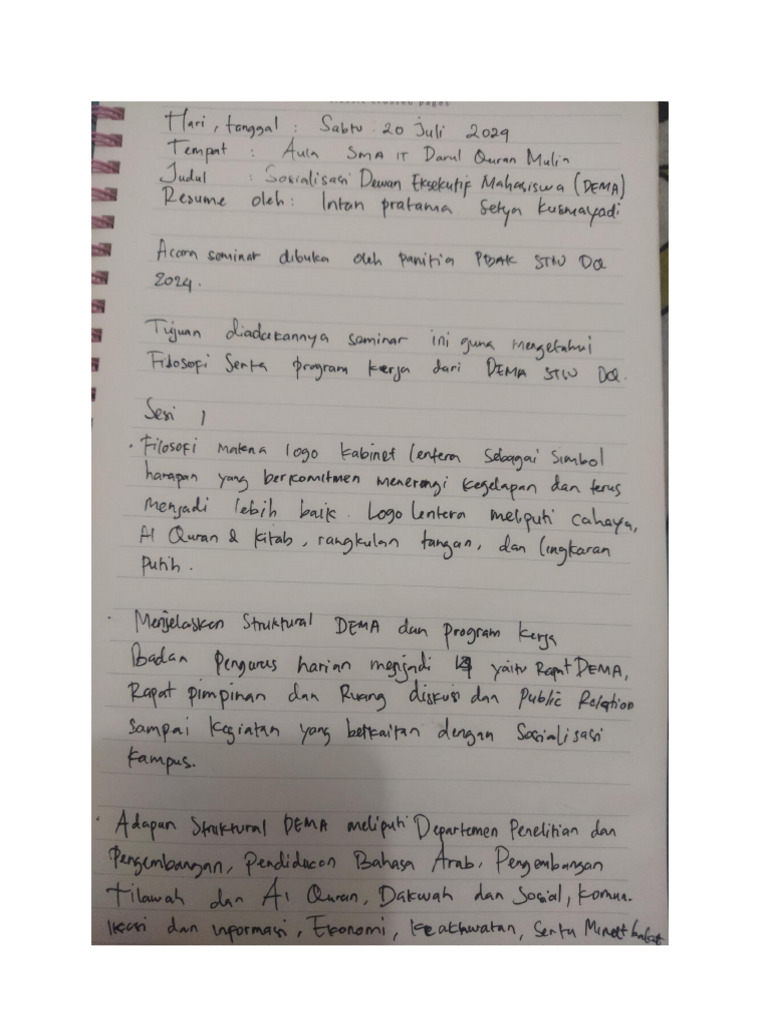 Hari, tanggal : Sabtu : 20 Juli 2024
Tempat : Aula SMA IT Darul Quran Mulia
Judul : Sosialisasi Dewan Eksekutif Mahasiswa (DEMA)
Resume oleh : Intan pratama Setya Kusmayadi
Acara seminar dibuka oleh panitia STIU DQ
2024.
Tujuan diadakannya seminar ini guna mengetahui
Filosofi Serta program kerja dari DEMA STIU DQ.
Sesi 1
· Filosofi makna logo kabinet lentera sebagai simbol
harapan yang berkomitmen menerangi kegelapan dan terus
menjadi lebih baik. Logo lentera meliputi cahaya,
Al Quran & kitab, rangkulan tangan, dan lingkaran
putih.
· Menjelaskan Struktural DEMA dan program kerja
Badan Pengurus harian menjadi yaitu Rapat DEMA,
Rapat pimpinan dan Ruang diskusi dan Public Relation
sampai kegiatan yang berkaitan dengan Sosialisasi
kampus.
· Adapun Struktural DEMA meliputi Departemen Penelitian dan
Pengembangan, Pendidikan Bahasa Arab, Pengembangan
tilawah dan Al Quran, Dakwah dan Sosial, Komun-
ikasi dan informasi, Ekonomi, Keakhwatan, Serta Minat bakat